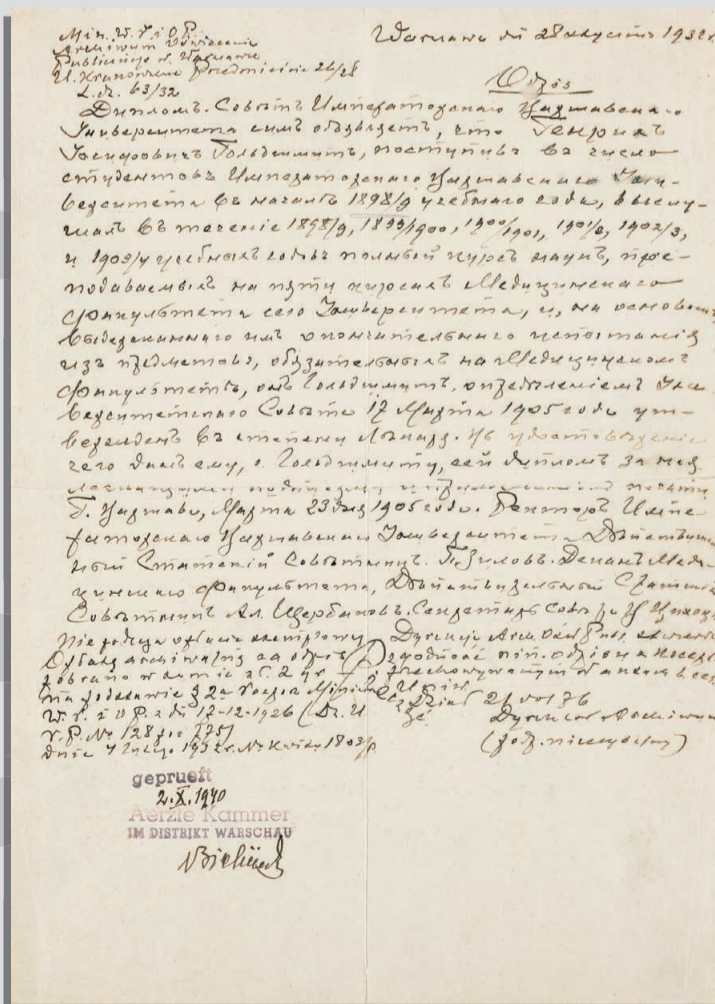 Min. W. R. i O. P.
Archiwum Oświecenia
Publicznego w Warszawie
Ul. Krakowskie Przedmieście 26/28
L. dz. 63/32
Warszawa dn 28 1932 r.
Odpis
Дипломъ. Совѣтъ Императорскаго Варшавскаго
Университета симъ объявляетъ, что Генрихъ
Іосифовичъ Гольдшмитъ, поступивъ въ число
студентовъ Императорскаго Варшавскаго Уни-
верситета въ началѣ 1898/9 учебнаго года, выслу-
шалъ въ теченіе 1898/9, 1899/1900, 1900/1901, 1901/2, 1902/3,
и 1903/4 учебныхъ годовъ полный курсъ наукъ, пре-
подаваемыхъ на пяти курсахъ Медицинскаго
факультета сего Университета, и, на основаніи
выдержаннаго имъ окончательнаго испытанія
изъ предметовъ, обязательныхъ на Медицинскомъ
факультетѣ, онъ Гольдшмитъ, опредѣленіемъ Уни-
верситетскаго Совѣта 17 Марта 1905 года ут-
вержденъ въ степени Лѣкаря. Въ удостовѣреніе
чего данъ ему, г. Гольдшмиту, сей дипломъ за над-
лежащими подписями и печати
Г. Варшава, Марта 23 дня 1905 года. Ректоръ Импе-
раторскаго Варшавскаго Университета Дѣйствитель-
ный Статскій Совѣтникъ П. Зиловъ. Деканъ Меди-
цинскаго факультета, Дѣйствительный Статскій
Совѣтникъ Ал. Щербаковъ. Секретарь Совѣта
Nie podlega opłacie stemplowej
Opłatę archiwalną za odpis
pobrano w kwocie zł. 2 gr
na podstawie § 2 a rozp. Minist.
W. R. i O. P. z dn 17-12-1926 (Dz. U.
R. P. No 128 poz 775)
Dnia 7 lutego 1932 r. No Kwitu
Dyrekcja Arch. Ośw. Publ. stwierdza
zgodność nin. odpisu z
przechowywanym w
Dyrektor Archiwum
(podp. nieczytelny)
geprueft
2.X.1940
Aerzte Kammer
IM DISTRIKT WARSCHAU